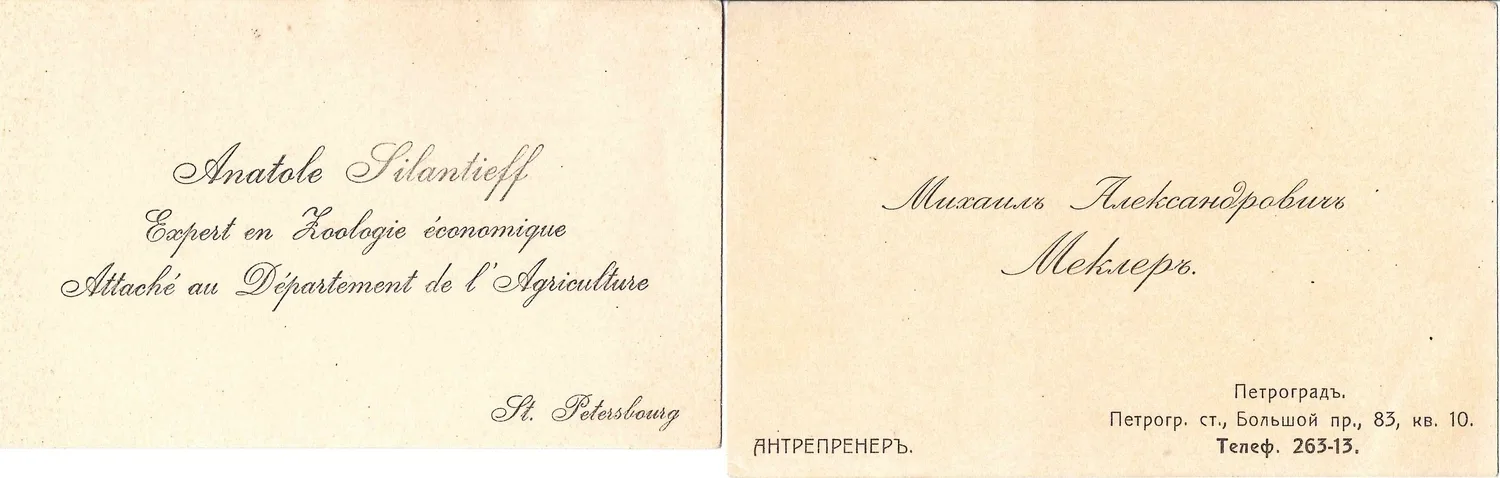 Anatole Silantieff
Expert en Zoologie économique
Attaché au Département de l'Agriculture
St. Petersbourg
Михаилъ Александровичъ
Меклеръ.
АНТРЕПРЕНЕРЪ.
Петроградъ.
Петрогр. ст., Большой пр., 83, кв. 10.
Телеф. 263-13.